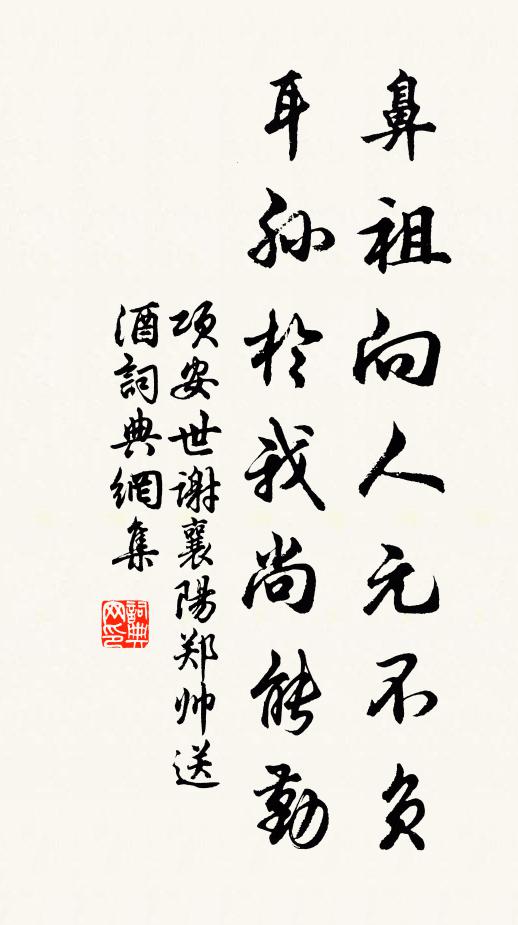 鼻祖向人元不负
耳孙於我尚能勤
项安世谢襄陽郑帅送
酒詞典網集
詞典网印